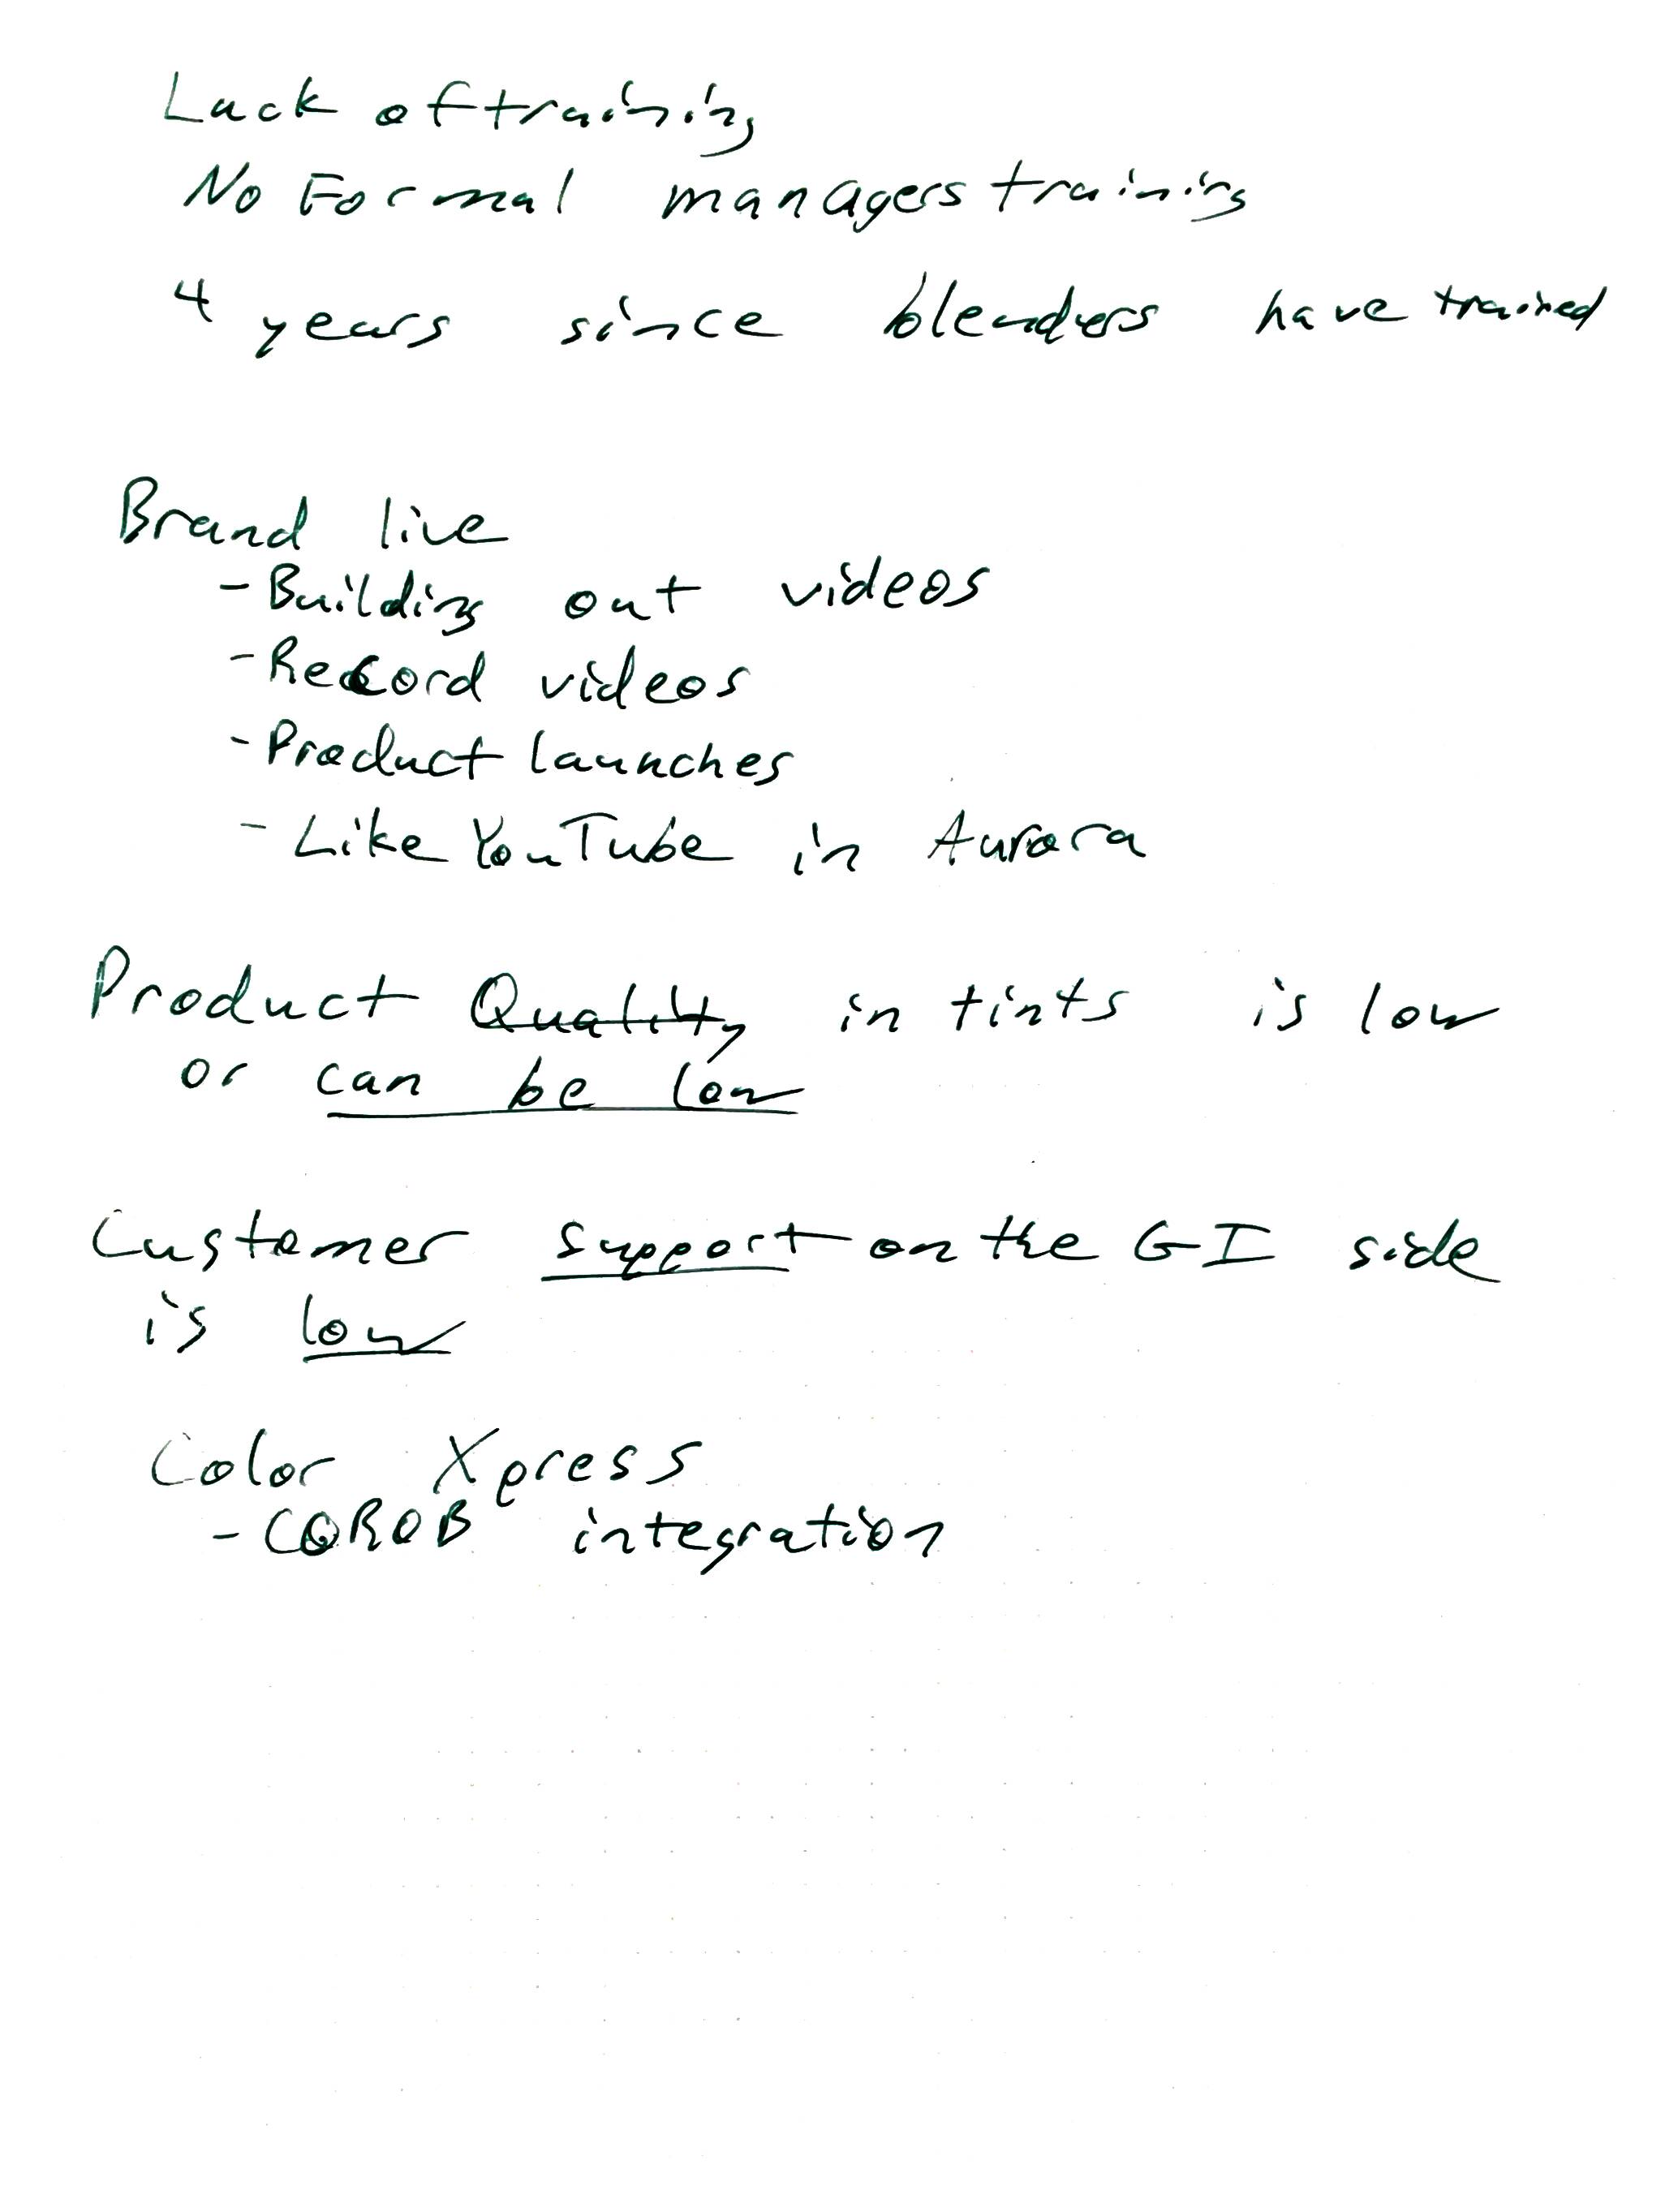 Lack of training
No Formal managers training
4 years since blenders have trained
Brand live
- Building out videos
- Record videos
- Product launches
- Like YouTube in Aurora
Product Quality in tints is low
or can be low
Customer support on the GI side
is low
Color Xpress
- COROB integration